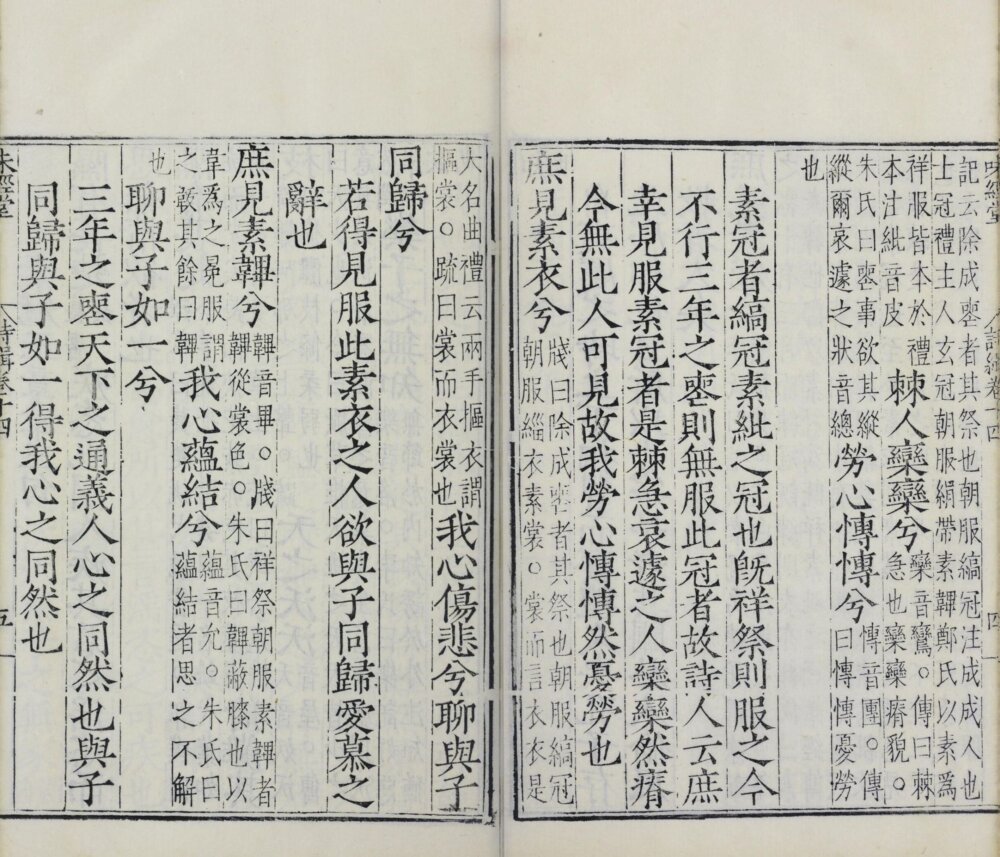 味經堂 詩緝卷十四 四
記云除成喪者其祭也朝服縞冠注成成人也
士冠禮主人玄冠朝服緇帶素韠鄭氏以素爲
祥服皆本於禮
本注紕音皮
棘人欒欒兮
欒音鸞。傳曰棘
急也欒欒瘠貌。
朱氏曰喪事欲其縱
縱爾哀遽之狀音總
勞心慱慱兮
慱音團。傳
曰慱慱憂勞
也
素冠者縞冠素紕之冠也旣祥祭則服之今
不行三年之喪則無服此冠者故詩人云庶
幸見服素冠者是棘急哀遽之人欒欒然瘠
今無此人可見故我勞心慱慱然憂勞也
庶見素衣兮
牋曰除成喪者其祭也朝服縞冠
朝服緇衣素裳。裳而言衣衣是
大名曲禮云兩手摳衣謂
摳裳。疏曰裳而衣裳也
我心傷悲兮聊與子
同歸兮
若得見服此素衣之人欲與子同歸愛慕之
辭也
庶見素韠兮
韠音畢。牋曰祥祭朝服素韠者
韠從裳色。朱氏曰韠蔽膝也以
韋爲之冕服謂
之韍其餘曰韠
我心蘊結兮
蘊音允。朱氏曰
蘊結者思之不解
也
聊與子如一兮
三年之喪天下之通義人心之同然也與子
同歸與子如一得我心之同然也
味經堂 詩緝卷十四 五